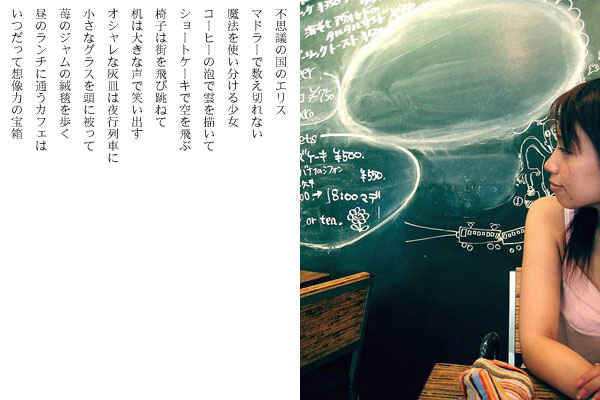 不思議の国のエリス
マドラーで数え切れない
魔法を使い分ける少女
コーヒーの泡で雲を描いて
ショートケーキで空を飛ぶ
椅子は街を飛び跳ねて
机は大きな声で笑い出す
オシャレな灰皿は夜行列車に
小さなグラスを頭に被って
苺のジャムの絨毯を歩く
昼のランチに通うカフェは
いつだって想像力の宝箱
リックトースト
¥750
ets
ズケーキ ¥500.
バナナのシフォン
¥550.
00 → 18:00 マデ
or tea.